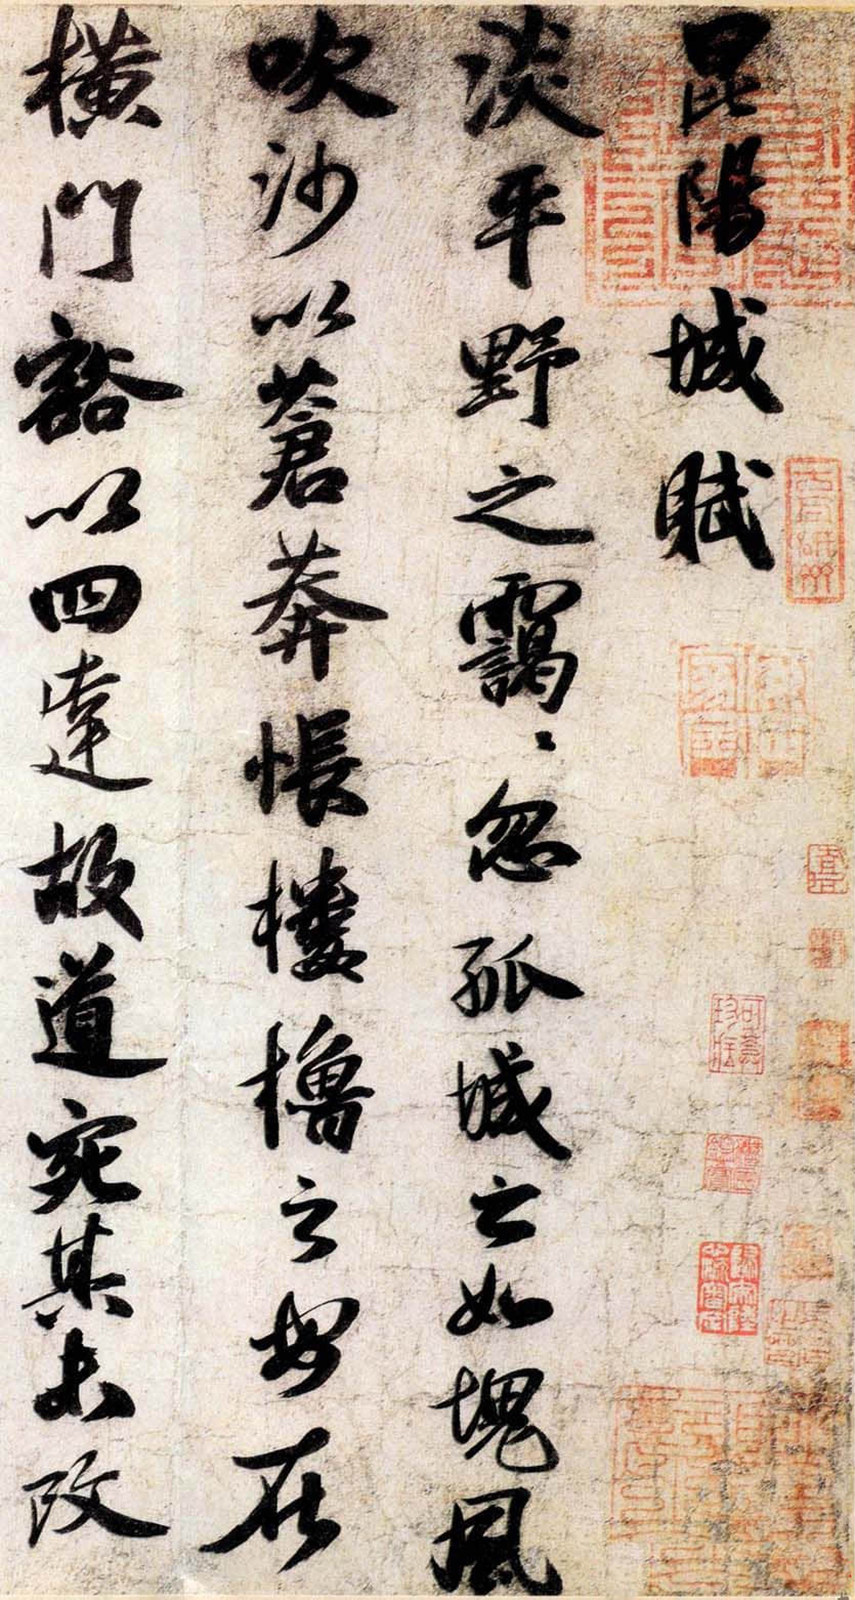 昆陽城賦
淡平野之靄〻忽孤城之如塊風
吹沙以蒼莽悵樓櫓之安在
橫門豁以四達故道宛其未改